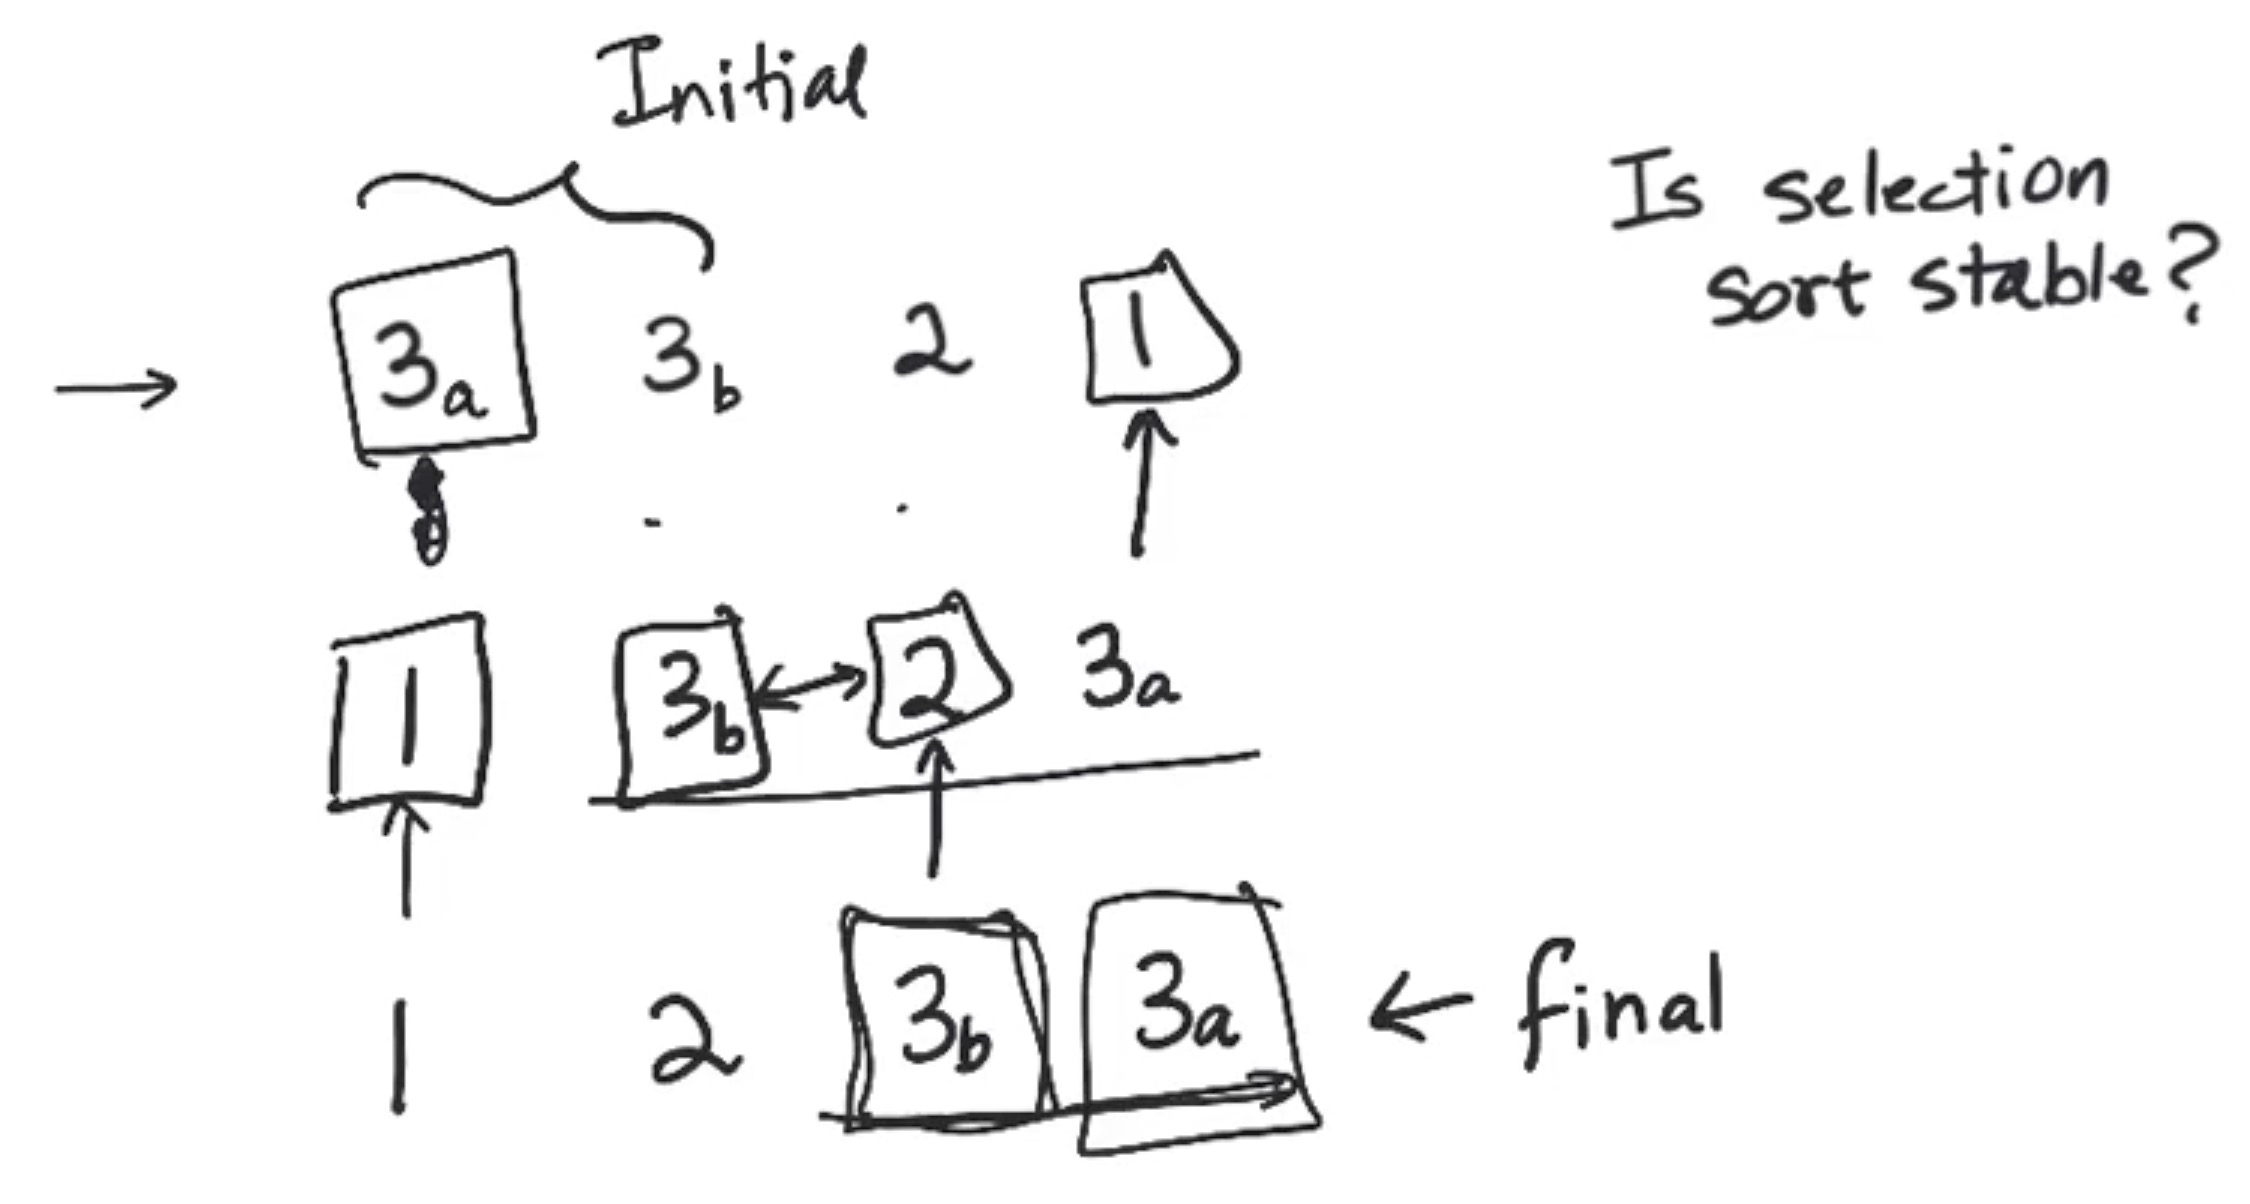 Initial
Is selection
sort stable?
→ 3a 3b 2 1
1 3b ↔ 2 3a
1 2 3b 3a ← final